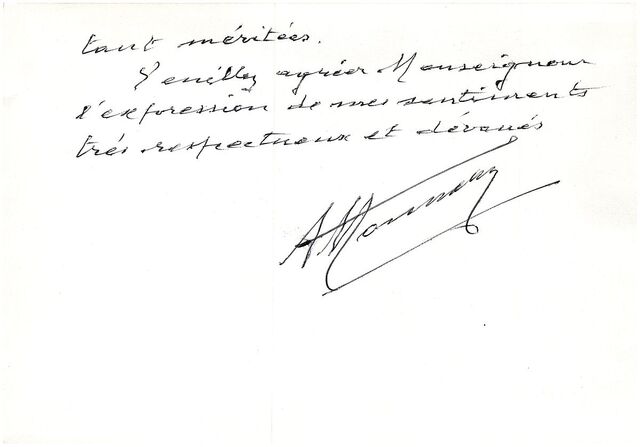 tant méritées.
Veuillez agréer Monseigneur
l'expression de mes sentiments
très respectueux et dévoués